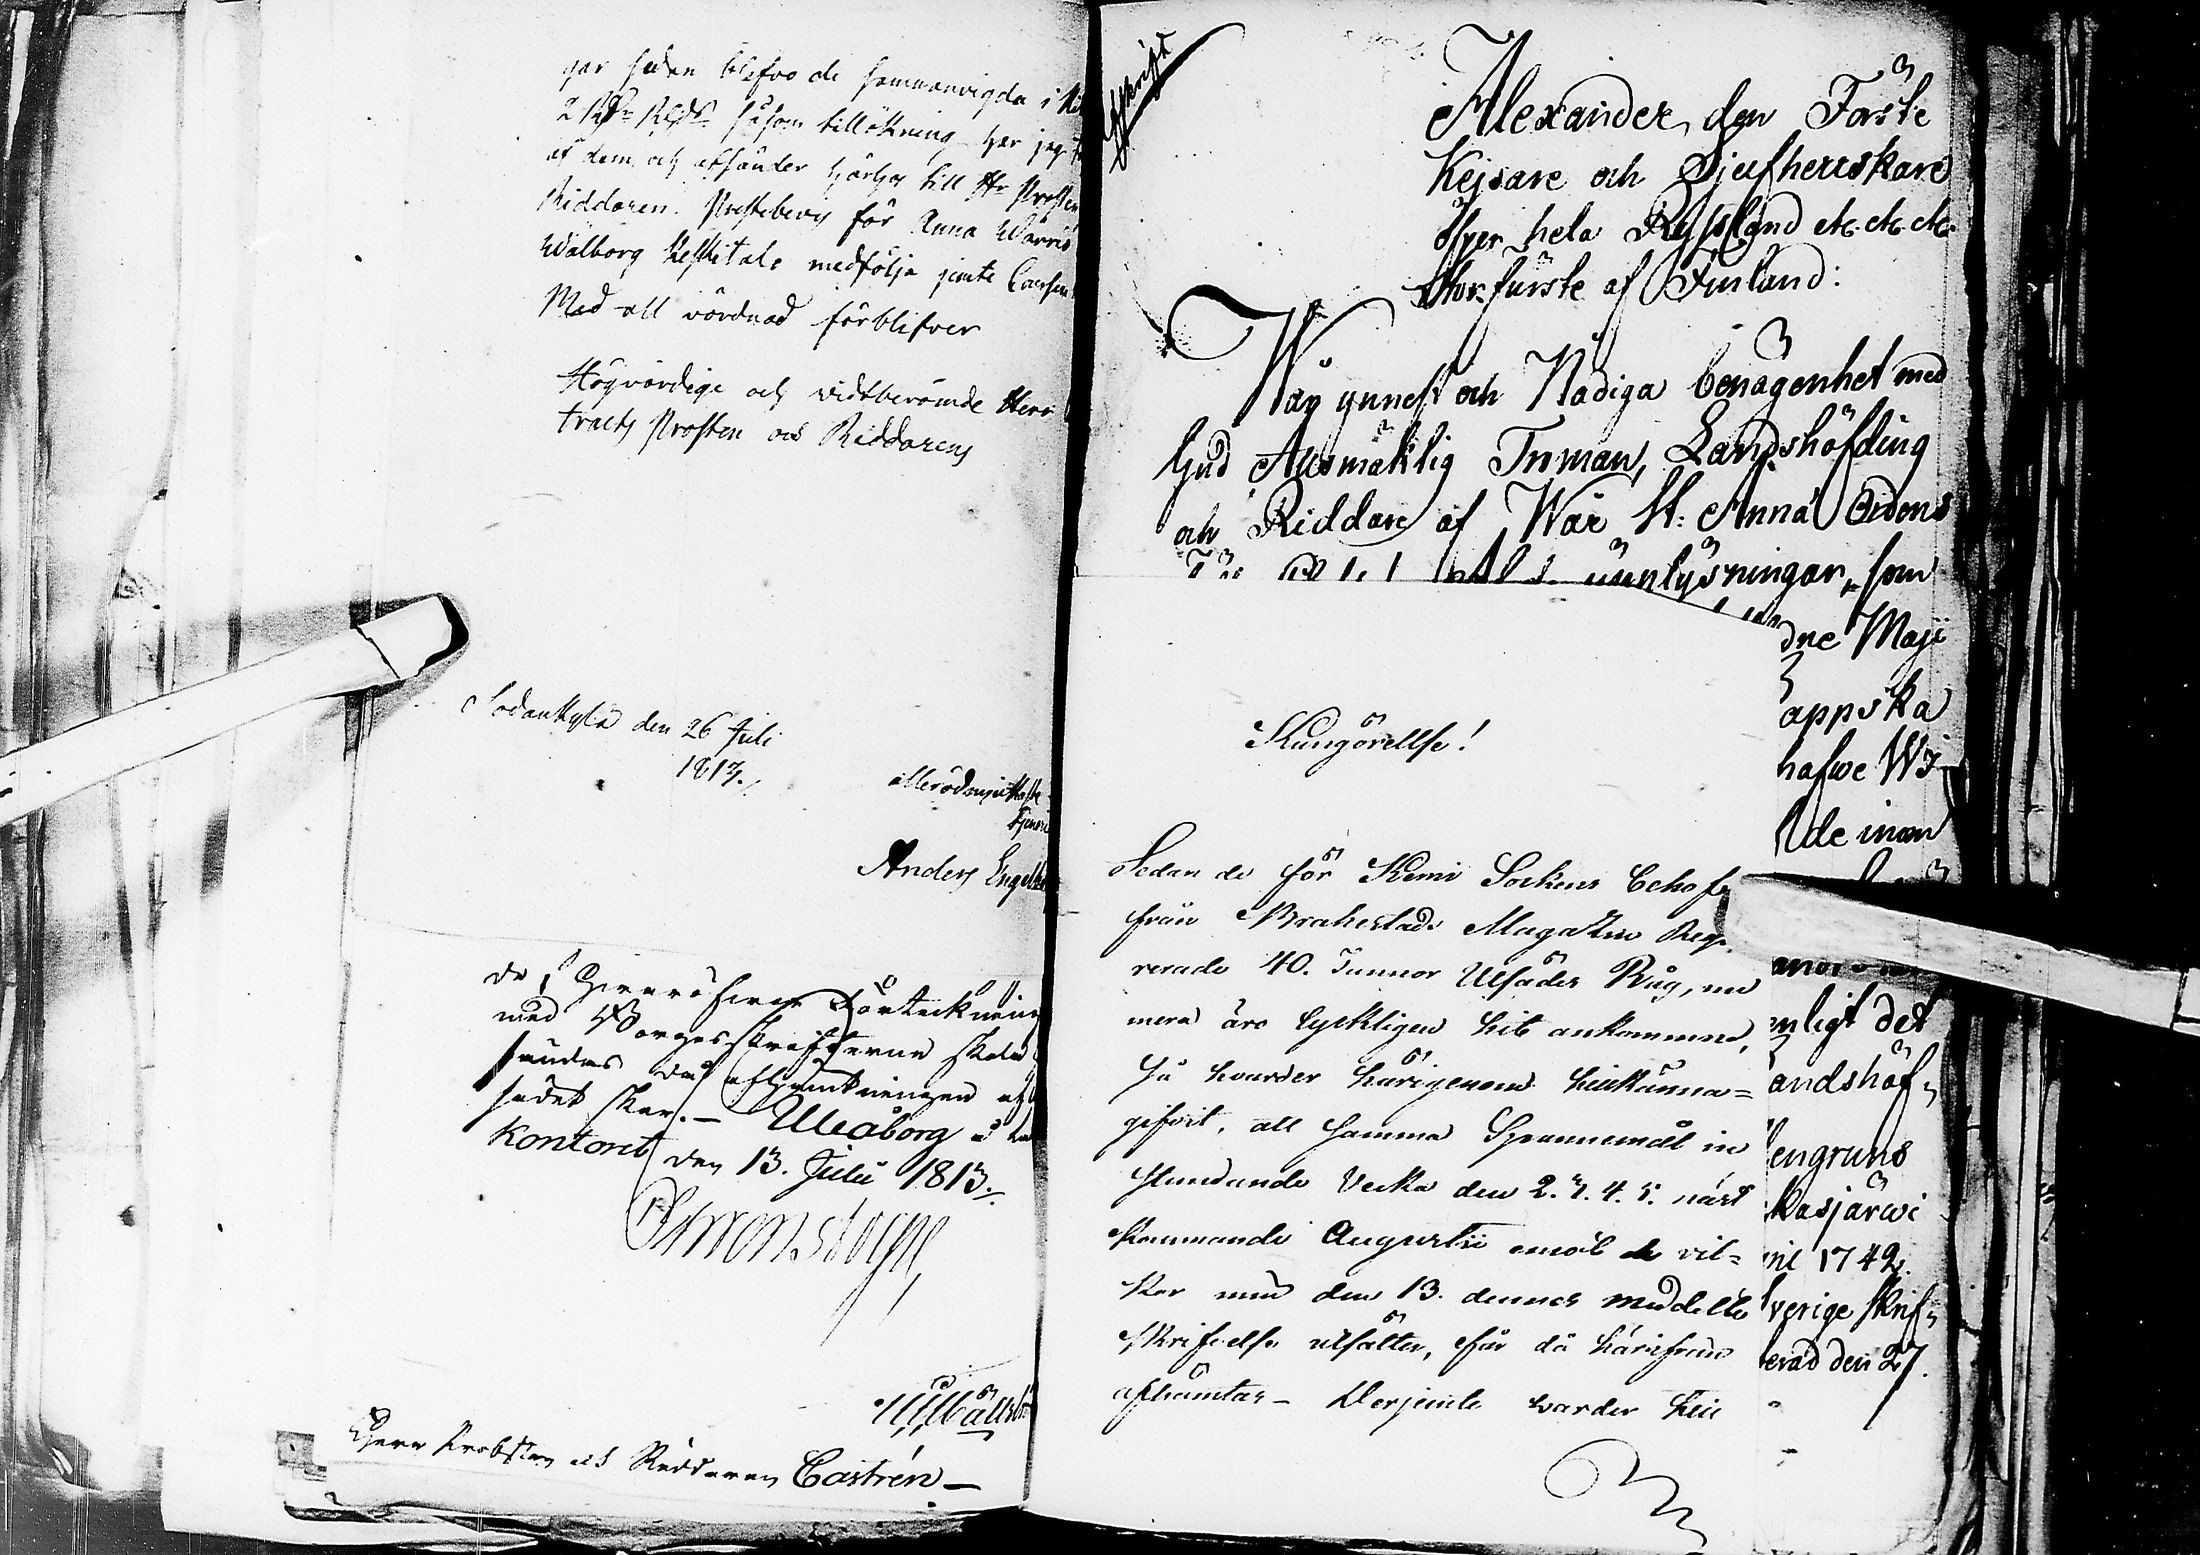 gar sedan blefvo de sammanvigda i
2 Rdr Rgds såsom tillökning har jag
af dem och afsänder härhos till Hr Prosten
Riddaren. Prestebevis för Anna
Walborg Keskitalo medfölja jemte
Med all vördnad förblifver
Högvördige och vidtberömde Herr
tracts Prosten och Riddarens
Sodankylä den 26 Juli
1813.
allerödmjukaste
tjenare
Anders
med
Förteckning
sändas då afhemtningen af
sådet sker. — Uleåborg
Kontoret den 13. Julii 1813.
Herr Probsten och Riddaren Castrén —
Afskrift
Alexander den Förste
Kejsare och Sjelfherrskare
öfver hela Ryssland etc. etc. etc.
Storfurste af Finland:
Wår ynnest och Nådiga benägenhet med
Gud Allsmäktig Troman, Landshöfding
och Riddare af Wår St: Anna Ordens
uplysningar, som
dne Maji
appska
hafwe Wi
lde inom
enligt det
andshöf-
engruns
kasjärwi
ril 1742.
verige skrif-
erad den 27.
Kungörellse!
Sedan de för Kemi Sockens behof
från Brahestads Magazin
rerade 40. Tunnor Utsädes Råg, nu
mera äro lyckligen hit ankomne,
så hvarder härigenom tillkänna-
gifvit, att samma Spannemål in
stundande Vecka den 2. 3. 4. 5. näst
kommande Augustii emot de vil-
kor min den 13. dennes meddelte
skrifvelse utsätter, får då härifrån
afhämtas — Derjemte varder till